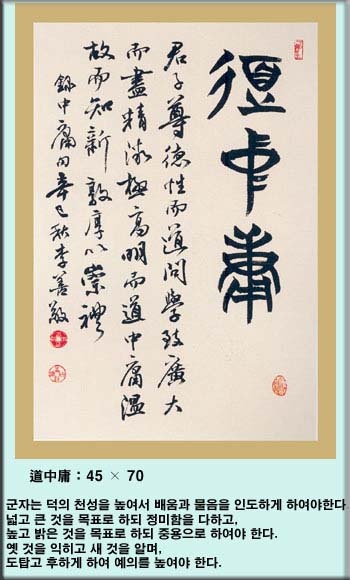 道中庸
君子尊德性而道問學致廣大
而盡精微極高明而道中庸溫
故而知新敦厚以崇禮
錄中庸句辛巳秋李善敬
道中庸 : 45 × 70
군자는 덕의 천성을 높여서 배움과 물음을 인도하게 하여야한다.
넓고 큰 것을 목표로 하되 정미함을 다하고,
높고 밝은 것을 목표로 하되 중용으로 하여야 한다.
옛 것을 익히고 새 것을 알며,
도탑고 후하게 하여 예의를 높여야 한다.